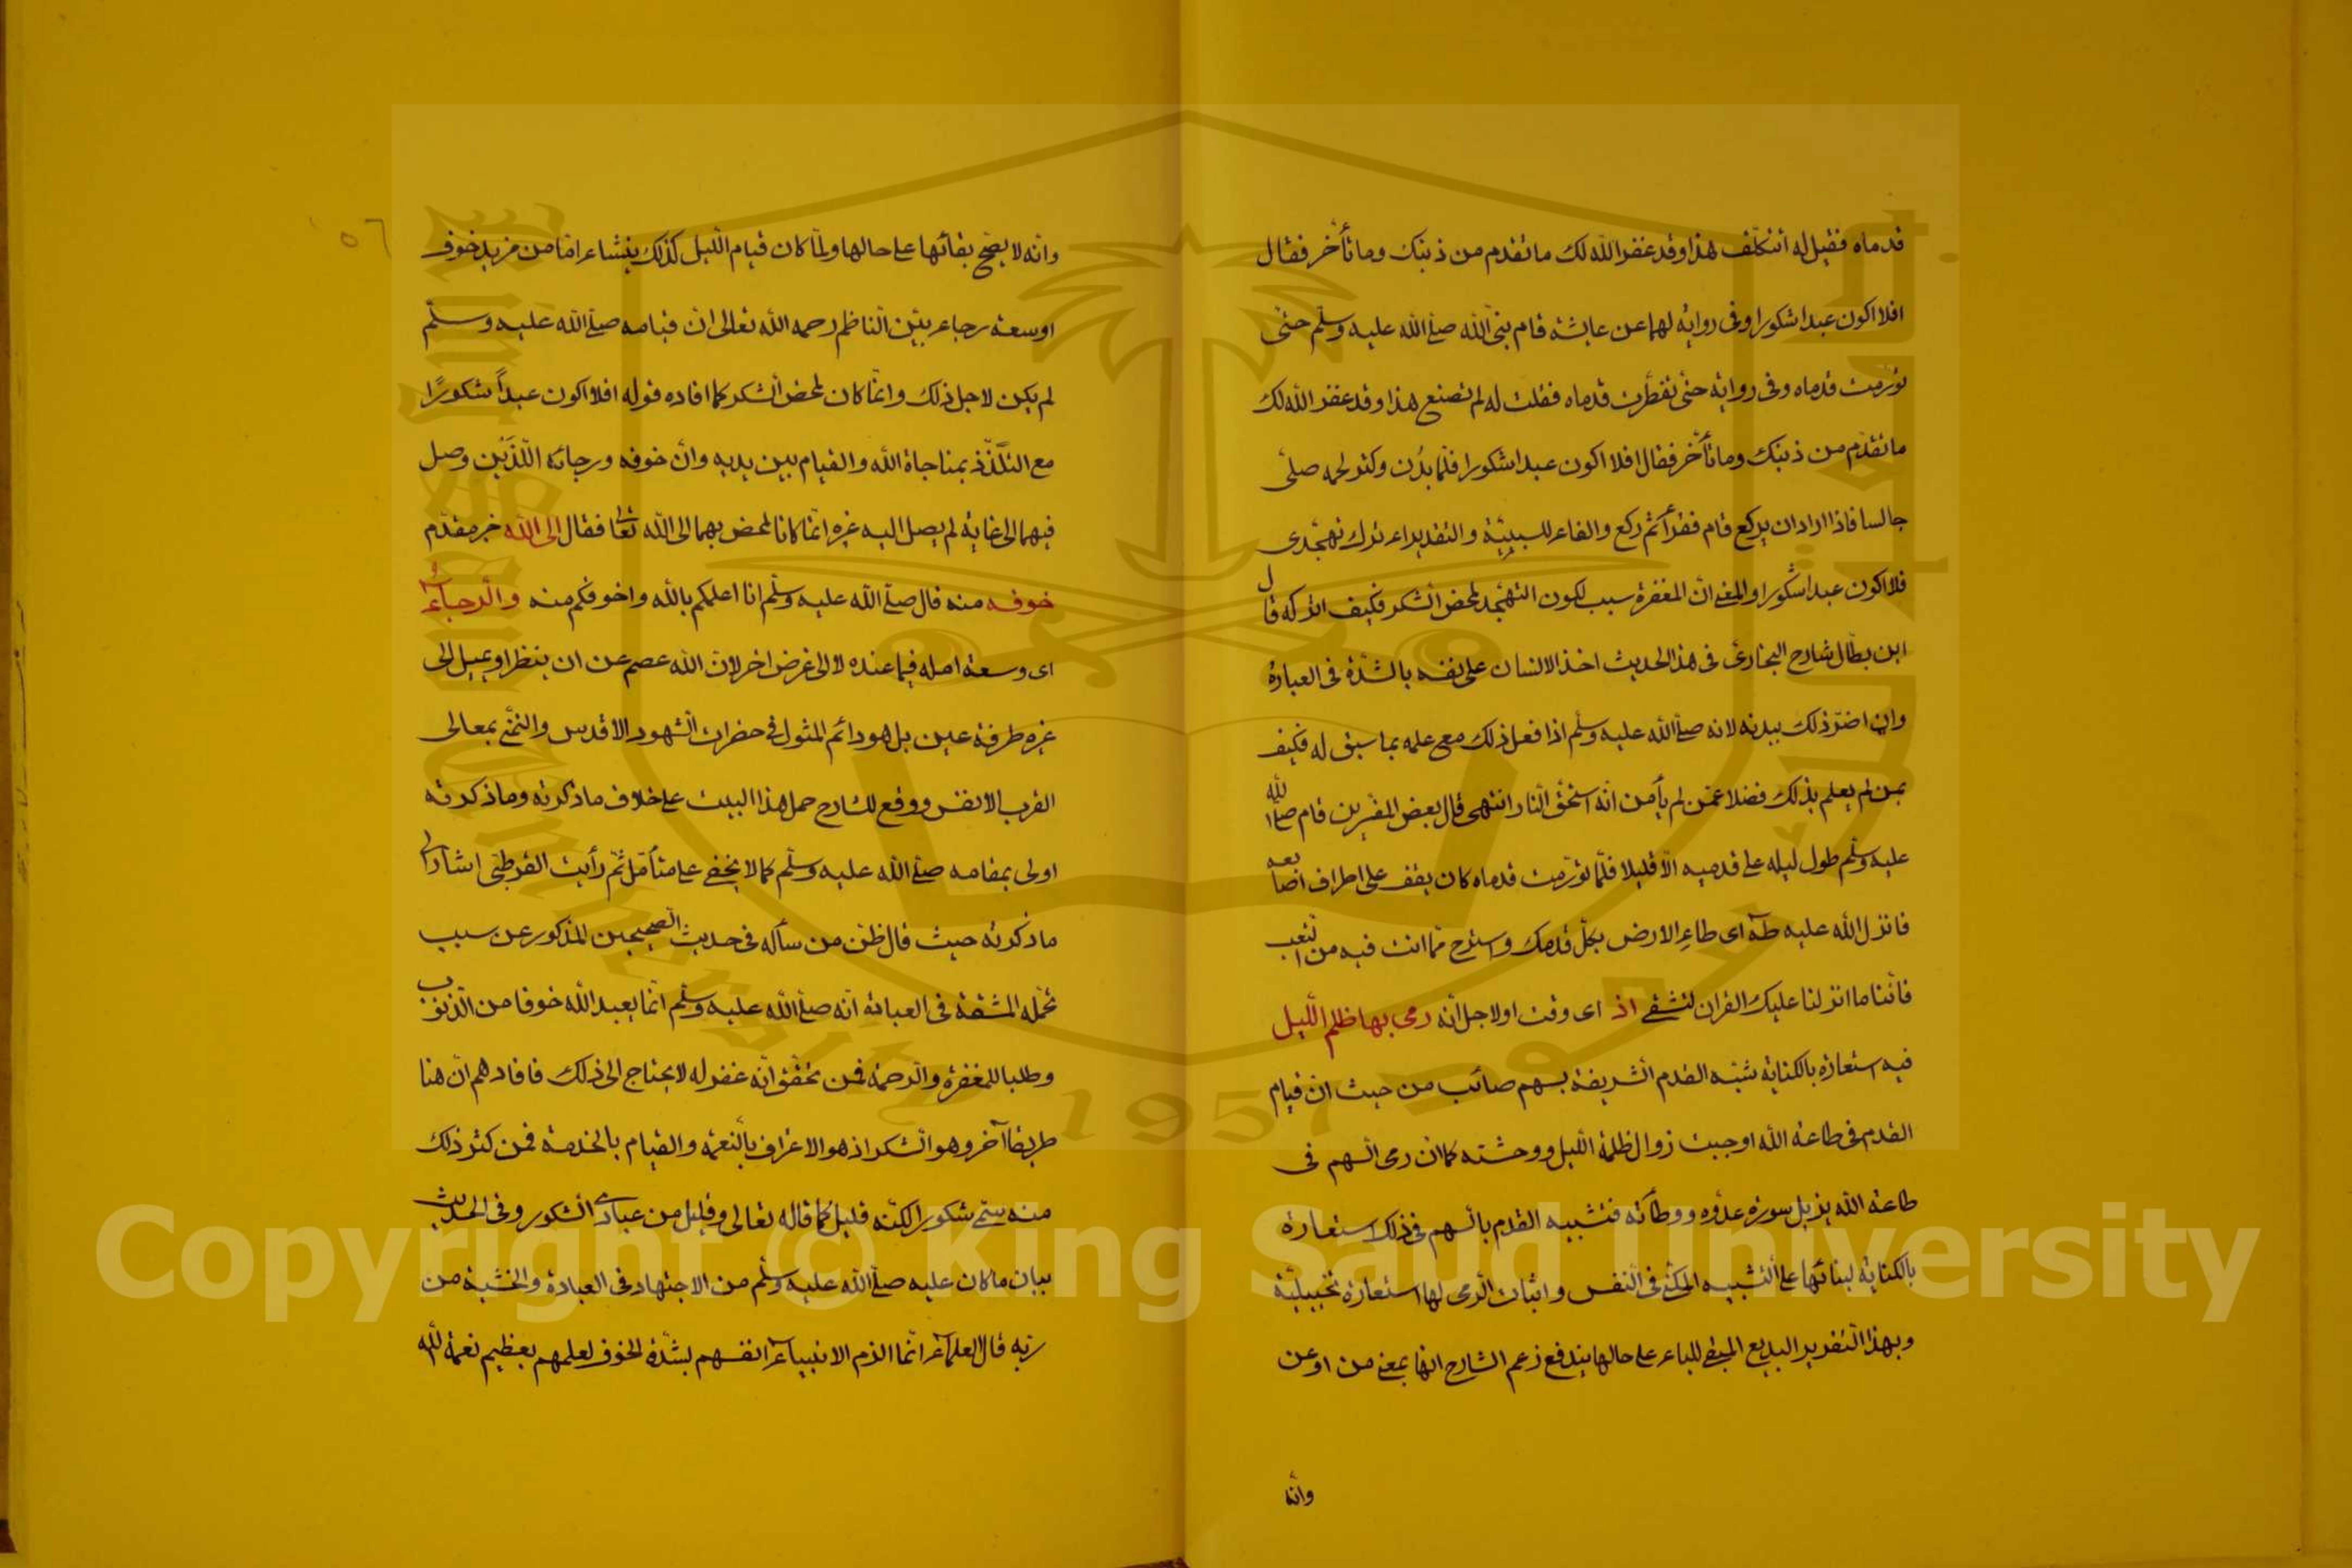 قدماه فقيل له أتتكلّف هذا وقد غفر الله لك ما تقدم من ذنبك وما تأخر فقال
افلا اكون عبدا شكورا وفى رواية لهما عن عايشة قام نبىّ الله صلّى الله عليه وسلّم حتىّ
تورّمت قدماه وفى رواية حتىّ تفطّرت قدماه فقلت له لم تصنع هذا وقد غفر الله لك
ما تقدّم من ذنبك وما تأخّر فقال افلا اكون عبدا شكورا فلمّا بدُن وكثر لحمه صلّى
جالسا فاذا اراد ان يركع قام فقرأ ثم ركع والفاء للسببيّة والتقدير اءترك تهجّدى
فلا اكون عبدا شكورا والمعنى انّ المغفرة سبب لكون التهجّد لمحض الشكر فكيف اتركه قال
ابن بطّال شارح البخارىّ فى هذا الحديث اخذ الانسان على نفسه بالشدّة فى العبادة
وان اضرّ ذلك ببدنه لانه صلّى الله عليه وسلّم اذا فعل ذلك مع علمه بما سبق له فكيف
بمن لم يعلم بذلك فضلا عمّن لم يأمن انّه استحقّ النار انتهى قال بعض المفسّرين قام صلّى الله
عليه وسلّم طول ليله على قدميه الاّ قليلا فلمّا تورّمت قدماه كان يقف على اطراف اصابعه
فانزل الله عليه طه اى طاء الارض بكلّ قدمك واسترح ممّا انت فيه من التعب
فانّنا ما انزلنا عليك القران لتشقى اذ اى وقت او لاجل انّه رمى بها ظلم اللّيل
فيه استعارة بالكناية شبّه القدم الشريفة بسهم صائب من حيث انّ قيام
القدم فى طاعة الله اوجبت زوال ظلمة اللّيل ووحشته كما انّ رمى السهم فى
طاعة الله يزيل سورة عدّوه ووطأته فتشبيه القدم بالسهم فى ذلك استعارة
بالكناية لبنائها على التشبيه المكنّى فى النفس واثبات الرّمى لها استعارة تخييليّة
وبهذا التقرير البديع المبقى للباء على حالها يندفع زعم الشارح انها بمعنى من او عن
وانّه
وانّه لا يصحّ بقائها على حالها ولمّا كان قيام اللّيل كذلك ينشاء امّا من مزيد خوف
او سعة رجاء بيّن النّاظم رحمه الله تعالى انّ قيامه صلّى الله عليه وسلّم
لم يكن لاجل ذلك وانّما كان لمحض الشكر كما افاده قوله افلا اكون عبداً شكورًا
مع التّلذّذ بمناجاة الله والقيام بين يديه وانّ خوفه ورجائه اللّذَيْن وصل
فيهما الى غاية لم يصل اليه غيره انّما كانا لمحض بهما الى الله تعالى فقال الى الله خبر مقدّم
خوفه منه قال صلّى الله عليه وسلّم انا اعلمكم بالله واخوفكم منه والرجاء
اى وسعة امله فيما عنده لا الى غرض اخر لانّ الله عصمه عن ان ينظر او يميل الى
غيره طرفة عين بل هو دائم المثول فى حضرات الشهود الاقدس والتمنّى بمعالى
القرب الانفس ووقع للشارح حمل هذا البيت على خلاف ما ذكرته وما ذكرته
اولى بمقامه صلّى الله عليه وسلّم كما لا يخفى على متأمّل ثمّ رأيت القرطبى اشار الى
ما ذكرته حيث قال ظنّ من سأله فى حديث الصحيحين المذكور عن سبب
تحمّله المشقّة فى العبادة انّه صلّى الله عليه وسلّم انّما يعبد الله خوفا من الذنوب
وطلبا للمغفرة والرحمة فمن تحقّق انّه غفر له لا يحتاج الى ذلك فافادهم انّ هنا
طريقا آخر وهو الشكر اذ هو الاعتراف بالنعمة والقيام بالخدمة فمن كثر ذلك
منه سمّى شكورا لكنّه قليل كما قاله تعالى وقليل من عبادى الشكور وفى الحديث
بيان ما كان عليه صلّى الله عليه وسلّم من الاجتهاد فى العبادة والخشية من
ربّه قال العلماء انّما الزم الانبياء انفسهم بشدّة الخوف لعلمهم بعظيم نعمة الله
Copyright © King Saud University
King Saud University
1957